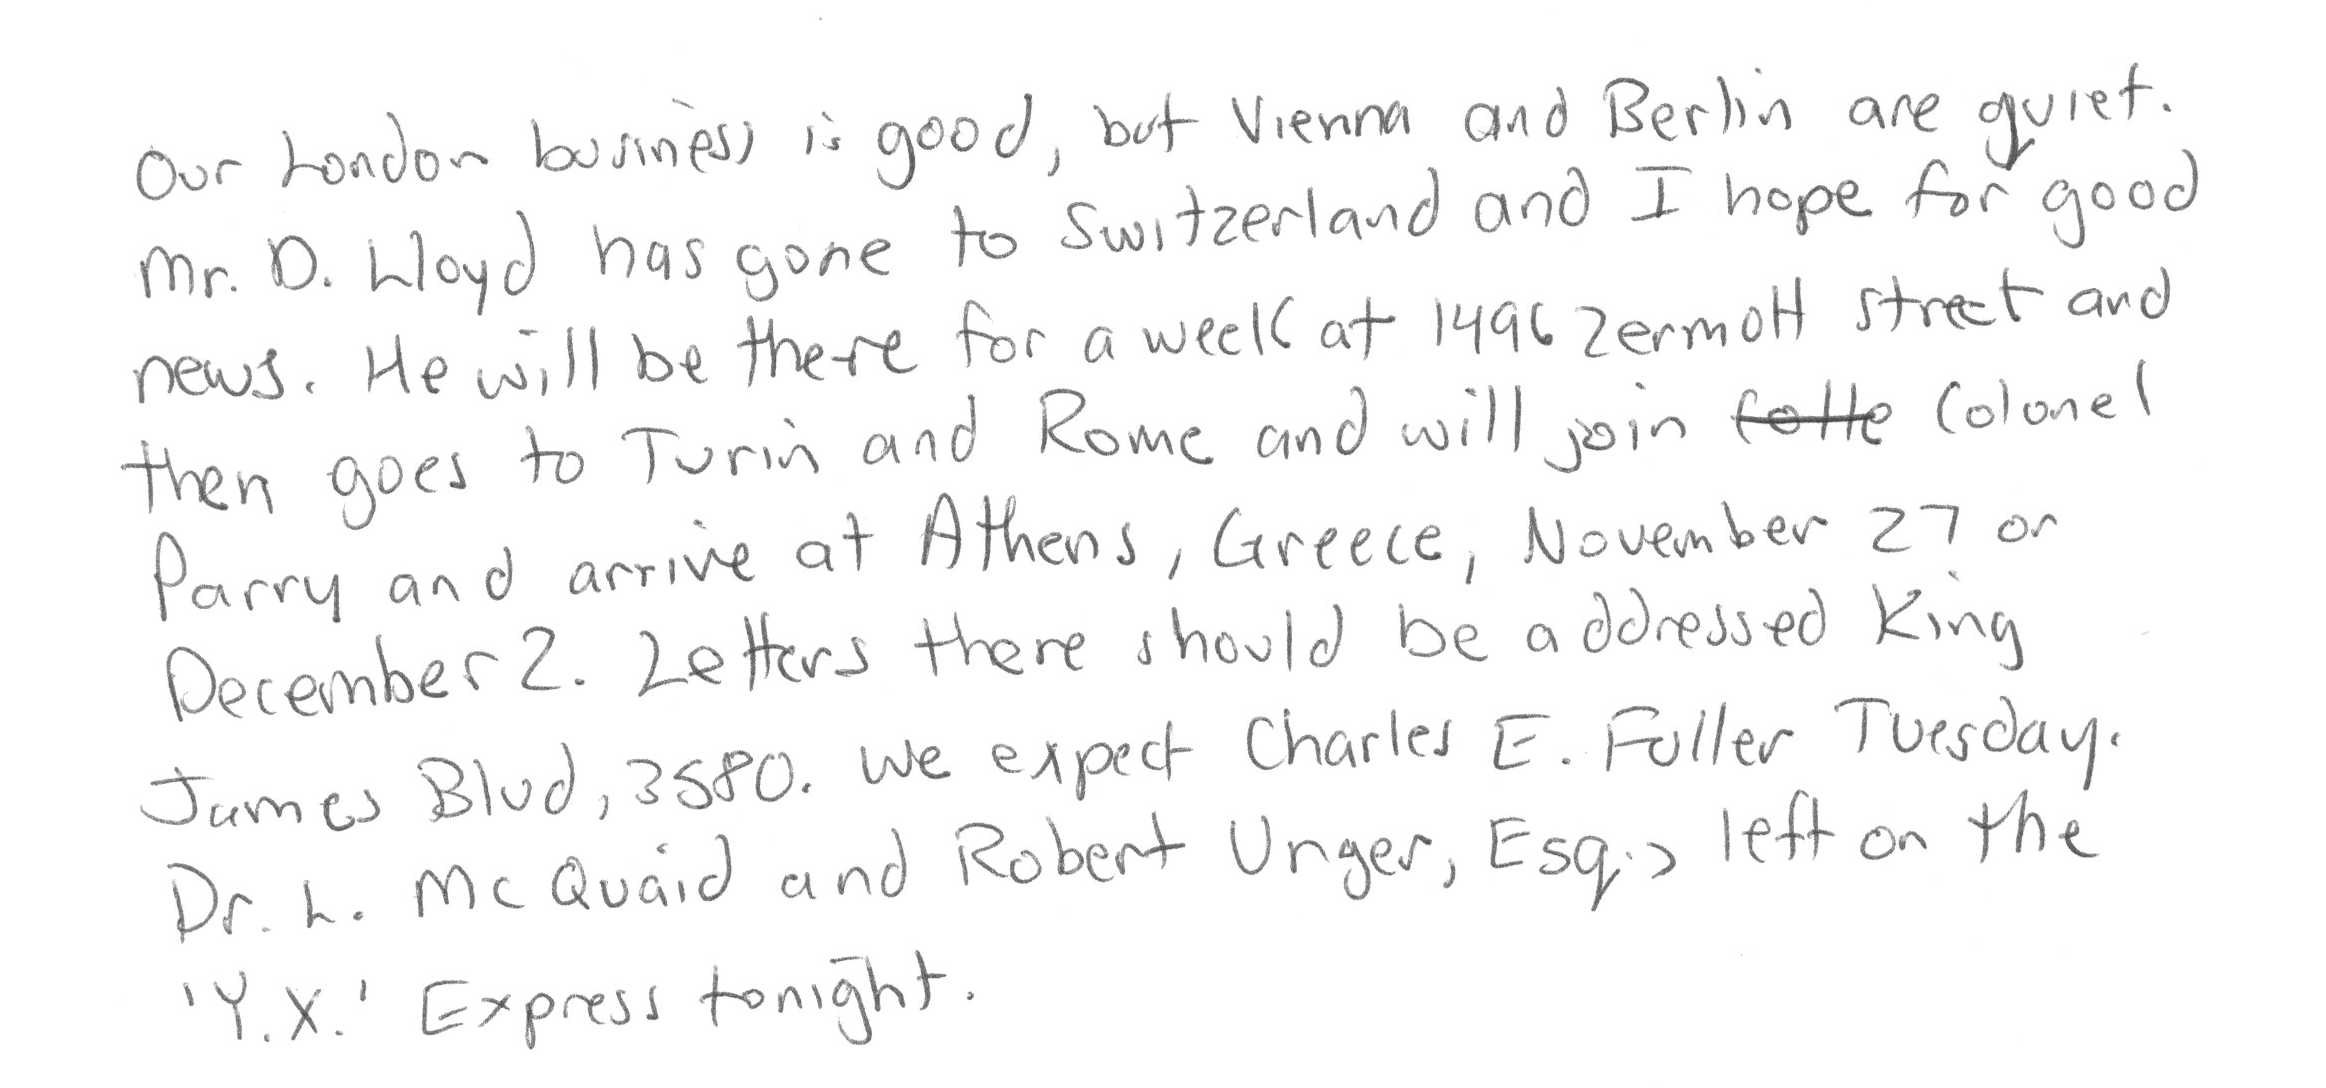 Our London business is good, but Vienna and Berlin are quiet.
Mr. D. Lloyd has gone to Switzerland and I hope for good
news. He will be there for a week at 1496 Zermott street and
then goes to Turin and Rome and will join Colonel
Parry and arrive at Athens, Greece, November 27 or
December 2. Letters there should be addressed King
James Blvd, 3580. We expect Charles E. Fuller Tuesday.
Dr. L. McQuaid and Robert Unger, Esq., left on the
'Y.X.' Express tonight.